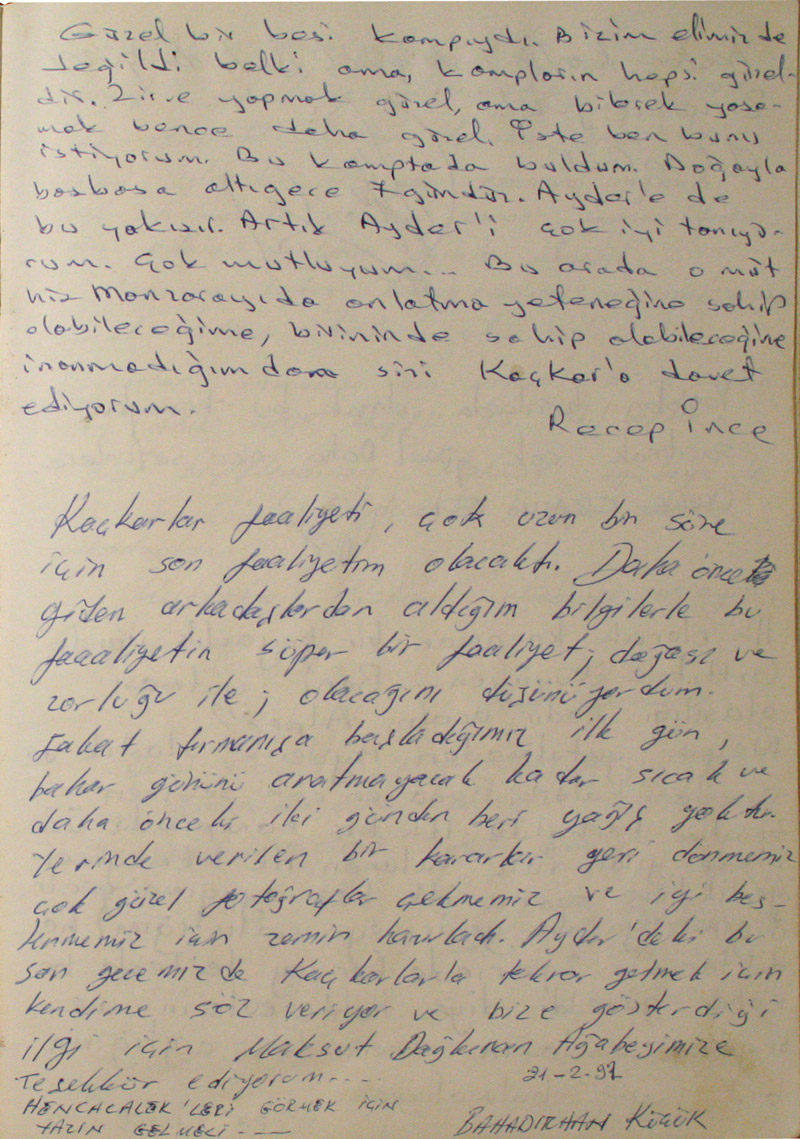 Güzel bir besi kampıydı. Bizim elimizde
değildi belki ama, kampların hepsi güzel-
dir. Zirve yapmak güzel, ama bilerek yaşa-
mak bence daha güzel. İşte ben bunu
istiyorum. Bu kamptada buldum. Doğayla
başbaşa altıgece 7gündüz. Ayder'e de
bu yakışır. Artık Ayder'i çok iyi tanıyo-
rum. Çok mutluyum... Bu arada o müt
hiş Manzarayıda anlatma yeteneğine sahip
olabileceğime, birininde sahip olabileceğine
inanmadığımdan sizi Kaçkar'a davet
ediyorum.
Recep İnce
Kaçkarlar faaliyeti, çok uzun bir süre
için son faaliyetim olacaktı. Daha önce
giden arkadaşlardan aldığım bilgilerle bu
faaaliyetin süper bir faaliyet; doğası ve
zorluğu ile; olacağını düşünüyordum.
Fakat tırmanışa başladığımız ilk gün,
bahar gününü aratmayacak kadar sıcak ve
daha önceki iki günden beri yağış yoktu.
Yerinde verilen bir kararla geri dönmemiz
çok güzel fotoğraflar çekmemiz ve iyi bes-
lenmemiz için zemin hazırladı. Ayder'deki bu
son gecemizde Kaçkarlarla tekrar gelmek için
kendime söz veriyor ve bize gösterdiği
ilgi için Maksut Ağabeyimize
Teşekkür ediyorum....
21-2-97
GÖRMEK İÇİN
YAZIN GELMELİ - --
BAHADIRHAN Küçük